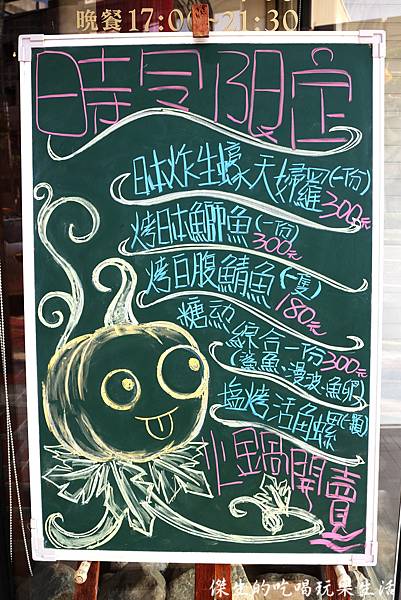 晚餐 17:00~21:30
時令限定
日本炸生蠔天婦羅(一份)
300元
烤日本鰤魚(一份)
300元
烤白腹鯖魚(一隻)
180元
糖紹
綜合一份 300元
(鯊魚.漫波.魚卵)
塩烤活角螺(一顆)
火鍋開賣
傑生的吃喝玩樂生活